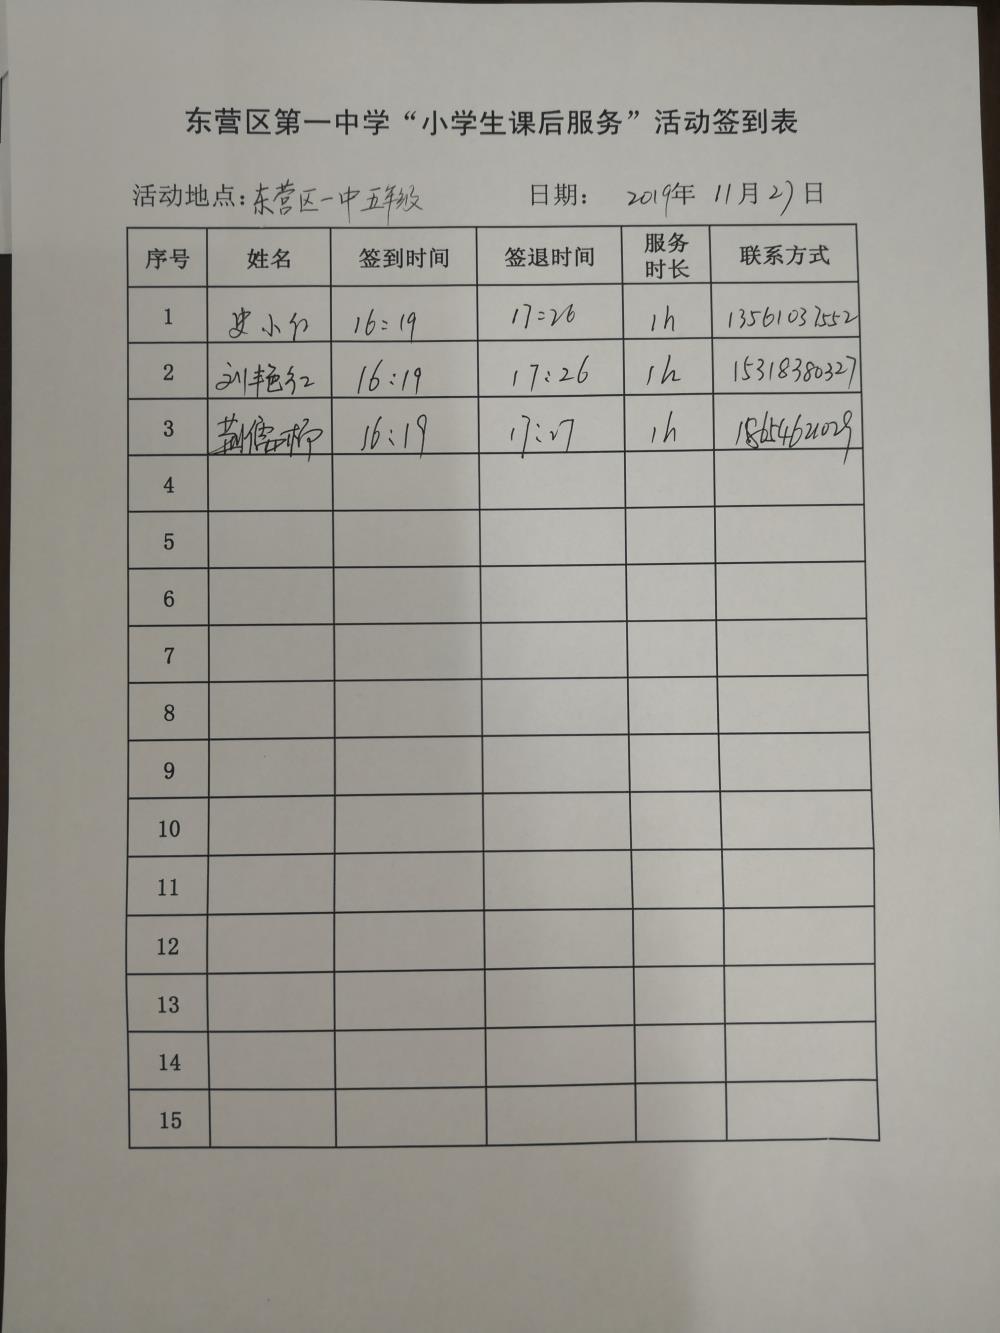 东营区第一中学“小学生课后服务”活动签到表
活动地点：东营区一中五年级 日期： 2019年 11月27日
序号 姓名 签到时间 签退时间 服务时长 联系方式
1 史小红 16:19 17:26 1h 13561037552
2 刘艳红 16:19 17:26 1h 15318380327
3 16:19 17:27 1h 18654621029
4
5
6
7
8
9
10
11
12
13
14
15